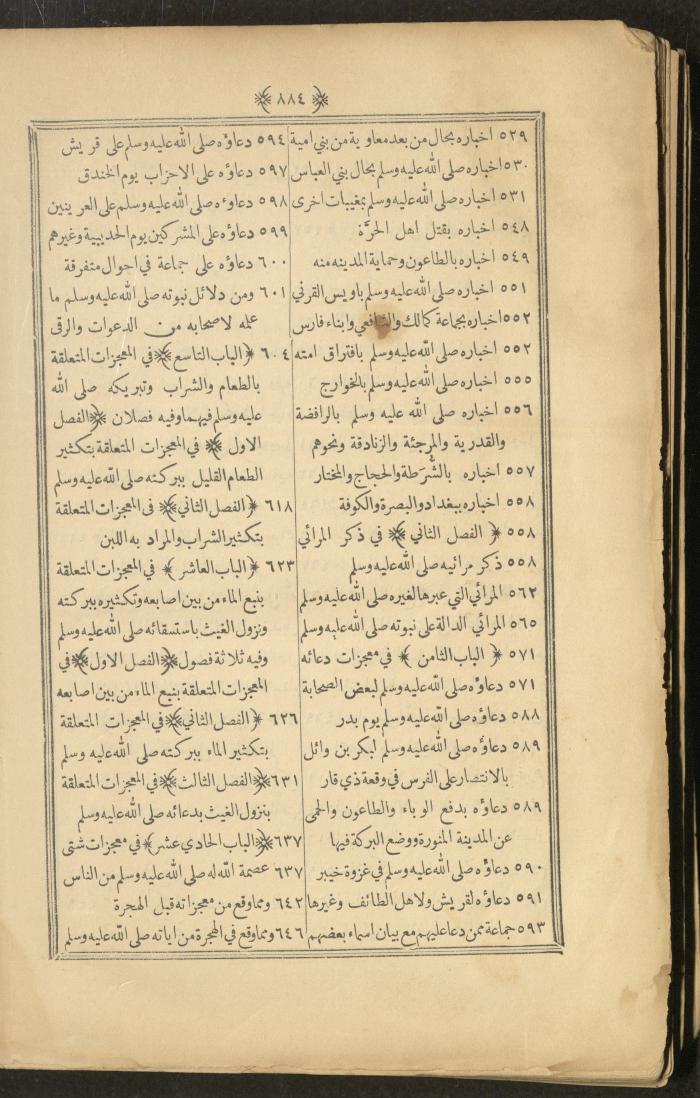 ﴿ ٨٨٤ ﴾
٥٢٩ اخباره بحال من بعد معاوية من بني امية
٥٣٠ اخباره صلى الله عليه وسلم بحال بني العباس
٥٣١ اخباره صلى الله عليه وسلم بمغيبات اخرى
٥٤٨ اخباره بقتل اهل الحرَّة
٥٤٩ اخباره بالطاعون وحماية المدينه منه
٥٥١ اخباره صلى الله عليه وسلم باويس القرني
٥٥٢ اخباره بجماعة كمالك والشافعي وابناء فارس
٥٥٢ اخباره صلى الله عليه وسلم بافتراق امته
٥٥٥ اخباره صلى الله عليه وسلم بالخوارج
٥٥٦ اخباره صلى الله عليه وسلم بالرافضة
والقدرية والمرجئة والزنادقة ونحوهم
٥٥٧ اخباره بالشُّرَطة والحجاج والمختار
٥٥٨ اخباره ببغداد والبصرة والكوفة
٥٥٨ ﴿ الفصل الثاني ﴾ في ذكر المرائي
٥٥٨ ذكر مرائيه صلى الله عليه وسلم
٥٦٢ المرائي التي عبرها لغيره صلى الله عليه وسلم
٥٦٥ المرائي الدالة على نبوته صلى الله عليه وسلم
٥٧١ ﴿ الباب الثامن ﴾ في معجزات دعائه
٥٧١ دعاؤه صلى الله عليه وسلم لبعض الصحابة
٥٨٨ دعاؤه صلى الله عليه وسلم يوم بدر
٥٨٩ دعاؤه صلى الله عليه وسلم لبكر بن وائل
بالانتصار على الفرس في وقعة ذي قار
٥٨٩ دعاؤه بدفع الوباء والطاعون والحمى
عن المدينة المنورة ووضع البركة فيها
٥٩٠ دعاؤه صلى الله عليه وسلم في غزوة خيبر
٥٩١ دعاؤه لقريش ولاهل الطائف وغيرها
٥٩٣ جماعة ممن دعا عليهم مع بيان اسماء بعضهم
٥٩٤ دعاؤه صلى الله عليه وسلم على قريش
٥٩٧ دعاؤه على الاحزاب يوم الخندق
٥٩٨ دعاؤه صلى الله عليه وسلم على العرينين
٥٩٩ دعاؤه على المشركين يوم الحديبية وغيرهم
٦٠٠ دعاؤه على جماعة في احوال متفرقة
٦٠١ ومن دلائل نبوته صلى الله عليه وسلم ما
علمه لاصحابه من الدعوات والرقى
٦٠٤ ﴿ الباب التاسع ﴾ في المعجزات المتعلقة
بالطعام والشراب وتبريكه صلى الله
عليه وسلم فيهما وفيه فصلان ﴿ الفصل
الاول ﴾ في المعجزات المتعلقة بتكثير
الطعام القليل ببركته صلى الله عليه وسلم
٦١٨ ﴿ الفصل الثاني ﴾ في المعجزات المتعلقة
بتكثير الشراب والمراد به اللبن
٦٢٣ ﴿ الباب العاشر ﴾ في المعجزات المتعلقة
بنبع الماء من بين اصابعه وتكثيره ببركته
ونزول الغيث باستسقائه صلى الله عليه وسلم
وفيه ثلاثة فصول ﴿ الفصل الاول ﴾ في
المعجزات المتعلقة بنبع الماء من بين اصابعه
٦٢٦ ﴿ الفصل الثاني ﴾ في المعجزات المتعلقة
بتكثير الماء ببركته صلى الله عليه وسلم
٦٣١ ﴿ الفصل الثالث ﴾ في المعجزات المتعلقة
بنزول الغيث بدعائه صلى الله عليه وسلم
٦٣٧ ﴿ الباب الحادي عشر ﴾ في معجزات شتى
٦٣٧ عصمة الله له صلى الله عليه وسلم من الناس
٦٤٢ ومما وقع من معجزاته قبل الهجرة
٦٤٦ ومما وقع في الهجرة من اياته صلى الله عليه وسلم